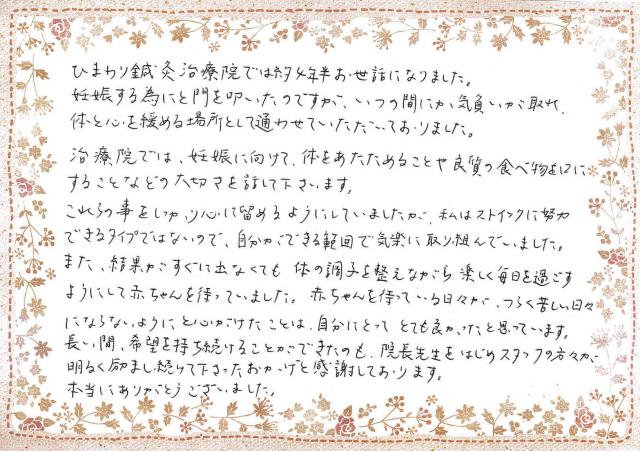 ひまわり鍼灸治療院では約4年半お世話になりました。
妊娠する為にと門を叩いたのですが、いつの間にか気負いが取れ、
体と心を緩める場所として通わせていただいておりました。
治療院では、妊娠に向けて、体をあたためることや良質の食べ物を口に
することなどの大切さを話して下さいます。
これらの事をしっかり心に留めるようにしていましたが、私はストイックに努力
できるタイプではないので、自分ができる範囲で気楽に取り組んでいました。
また、結果がすぐに出なくても 体の調子を整えながら 楽しく毎日を過ごす
ようにして赤ちゃんを待っていました。赤ちゃんを待っている日々が、つらく苦しい日々
にならないようにと心がけたことは、自分にとって とても良かったと思っています。
長い間、希望を持ち続けることができたのも、院長先生をはじめスタッフの方々が
明るく励まし続けて下さったおかげと感謝しております。
本当にありがとうございました。